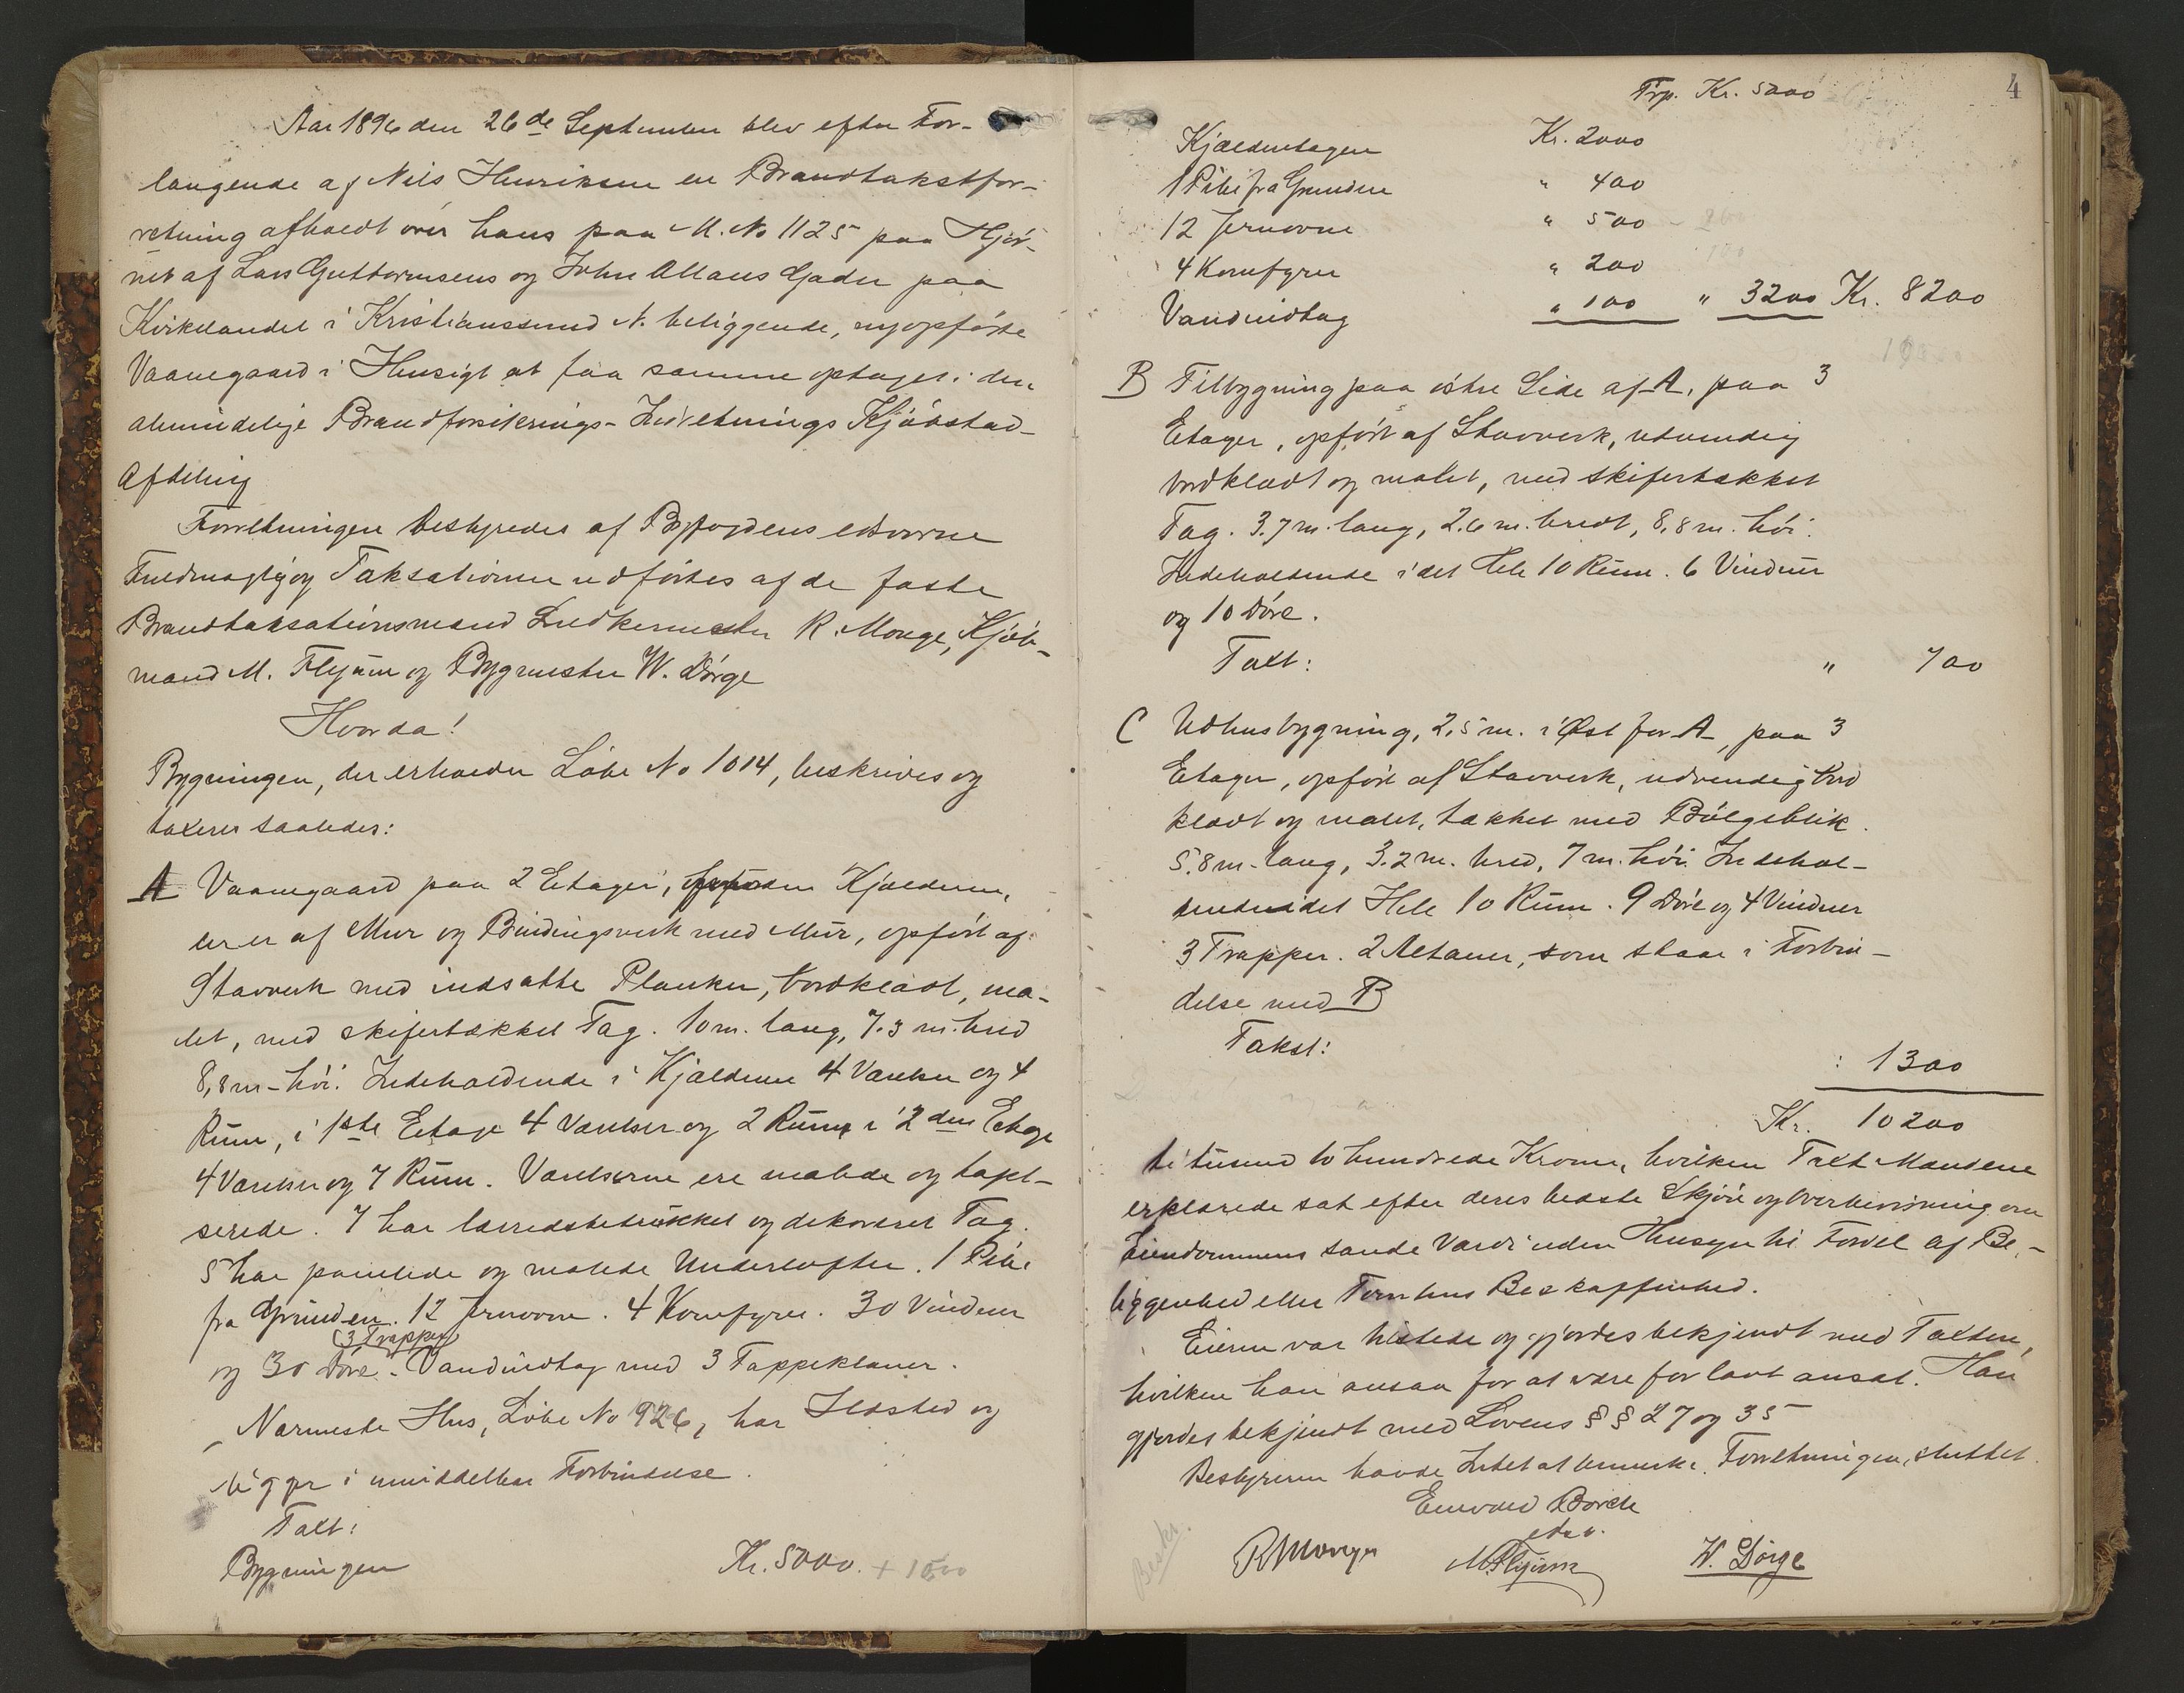 Aar 1896 den 26de September blev efter For-
langende af Nils Henriksen en Brandtakstfor-
retning afholdt over hans paa M. No 1125 paa Hjör-
net af Lars Guttormsens og John Allans Gader paa
Kirkelandet i Kristianssund N. beliggende, nyopförte
Vaanegaard i Hensigt at faa samme optaget i den
almindelige Brandforsikrings-Indretnings Kjöbstad-
Afdeling
Forretningen bestyredes af Byfogdens edsvorne
Fuldmægtig og Taksationen udförtes af de faste
Brandtaksationsmænd Snedkermester R. Monge, Kjöb-
mand M. Flyum og Bygmester W. Dörge
Hvorda!
Bygningen, der erholder Löbe No 1014, beskrives og
taxeres saaledes:
A Vaanegaard paa 2 Etager, foruden Kjelderen,
der er af Mur og Bindingsverk med Mur, opfört af
Stavverk med indsatte Planker, bordklædt, ma-
let, med skifertækket Tag. 10 m. lang, 7.3 m. bred
8,8 m. höi. Indeholdende i Kjelderen 4 Værelser og 4
Rum, i 1ste Etage 4 Værelser og 2 Rum, i 2den Etage
4 Værelser og 7 Rum. Værelserne ere malede og tapet-
serede. 7 har lærredsbetrukket og dekoreret Tag.
5 har panelede og malede Underlofter. 1 Pibe
fra Grunden. 12 Jernovne. 4 Komfyrer. 30 Vinduer
(3 Trapper)
og 30 Döre. Vandindtag med 3 Tappekraner.
Nærmeste Hus, Löbe No 926, har Ildsted og
ligger i umiddelbar Forbindelse.
Taxt:
Bygningen Kr. 5000. + 1500
4
Trp. Kr. 5000
Kjælderetagen Kr. 2000
1 Pibe fra Grunden " 400
12 Jernovne " 500
4 Komfyrer " 200
Vandindtag " 100 " 3200 Kr. 8200
B Tilbygning paa östre Side af A, paa 3
Etager, opfört af Stavverk, udvendig
bordklædt og malet, med skifertækket
Tag. 3.7 m. lang, 2.6 m. bredt, 8,8 m. höi.
Indeholdende i det Hele 10 Rum. 6 Vinduer
og 10 Döre.
Taxt: " 700
C Udhusbygning, 2,5 m. i Øst for A, paa 3
Etager, opfört af Stavverk, udvendig bord
klædt og malet, tækket med Bölgeblik.
5.8 m. lang, 3.2 m. bred, 7 m. höi. Indehol-
dende i det Hele 10 Rum. 9 Döre og 4 Vinduer
3 Trapper. 2 Altaner, som staar i Forbin-
delse med B
Takst:
: 1300
Kr. 10200
titusend to hundrede Kroner, hvilken Taxt Mændene
erklærede sat efter deres bedste Skjön og Overbevisning om
Eiendommens sande Værdi uden Hensyn til Fordel af Be-
liggenhed eller Tomtens Beskaffenhed.
Eieren var tilstede og gjordes bekjendt med Taxten,
hvilken han ansaa for at være for lavt ansat. Han
gjordes bekjendt med Lovens § § 27 og 35
Bestyreren havde Intet at bemerke. Forretningen sluttet.
Enevald Borch
edsv.
R Monge M. Flyum W. Dörge
Beskr.